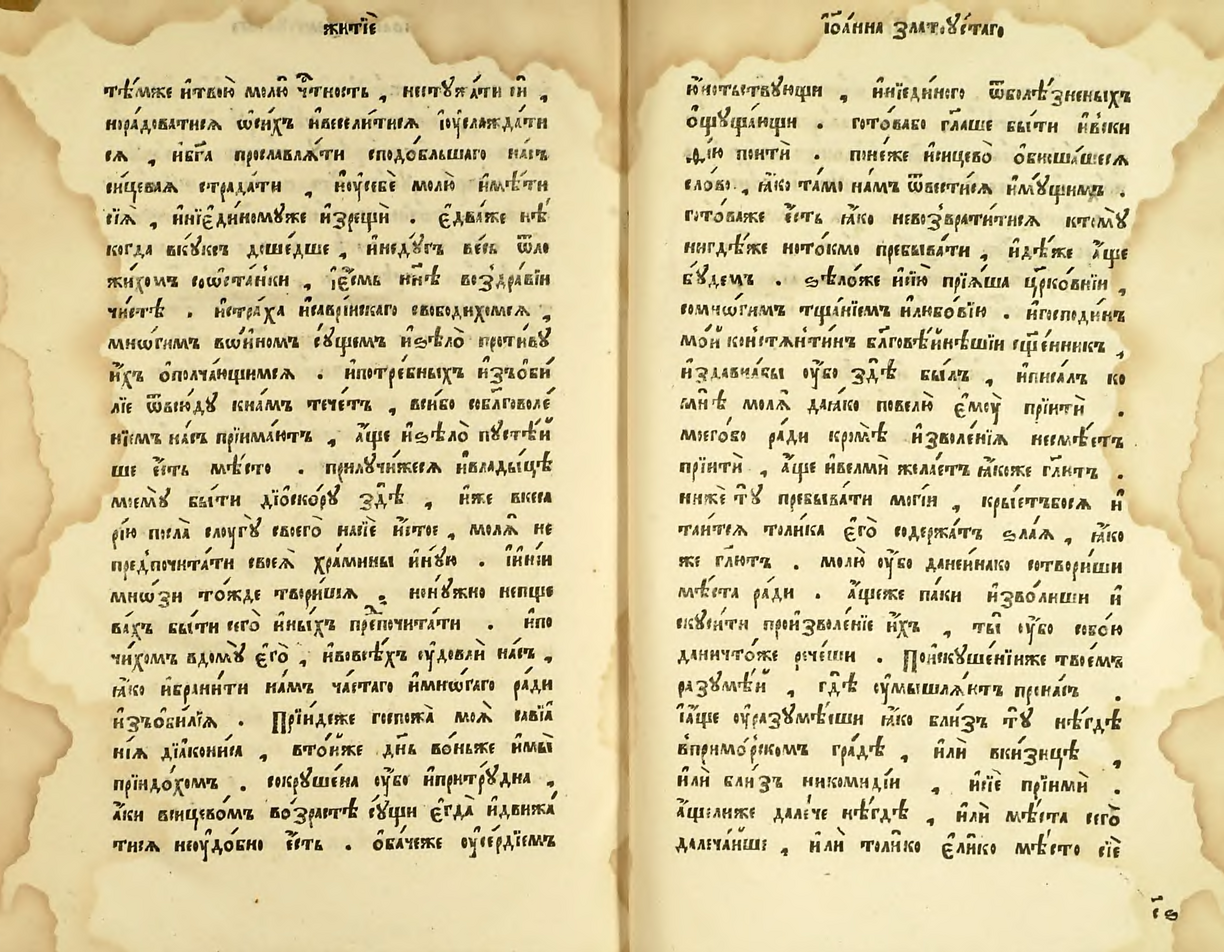 житїѐ
тѣ́мже и҆твою̀ молю̀ чⷭ҇тность , нестꙋжа́ти сѝ ,
норадоватися ѡ҆си́хъ и҆веселѝтися їоу҆слажда́ти
ся , и҆бг҃а прославлѧ́ти сподо́бльшаго на́съ
сицевая страда́ти , и҆оу҆себѐ молю̀ и҆мѣ́ти
сїѧ̀ , и҆нїє҆ди́номꙋже и҆зрещѝ . є҆два́же нѣ́
когда вкꙋ́ксъ дошедше , и҆недꙋ́гъ ве́сь ѿло
жи́хомъ соѡ҆ста́нки , їє҆́смь нн҃ѣ воздра́вїи
чи́стѣ . и҆стра́ха и҆са́врїискаго свободи́хомся ,
мнѡ́гимъ во́иномъ сꙋ́щемъ и҆ѕѣлѡ̀ проти́вꙋ
и҆́хъ ѻ҆полча́ющимся . и҆потре́бныхъ и҆зъѻ҆би́
лїе ѿвсю́дꙋ кна́мъ тече́тъ , всѝбо собл҃говоле́
нїемъ на́съ прїима́ютъ , а҆́ще и҆ѕѣлѡ̀ пꙋстѣ́й
ше є҆́сть мѣ́сто . прилꙋчи́жеся и҆влады́цѣ
моемꙋ̀ бы́ти дїѻ҆ско́рꙋ здѣ̀ , и҆же вкеса
рі́ю посла̀ слоугꙋ̀ своего̀ насїѐ и҆́стое , молѧ̀ не
предпочита́ти своеѧ̀ хра́мины и҆́нꙋю . і҆и҆нїи
мнѡ́зи то́жде твори́шѧ , нонꙋжно непще
ва́хъ бы́ти сего̀ и҆ны́хъ пре́почита́ти . и҆по
чи́хомъ вдомꙋ̀ є҆го̀ , и҆вовсѣ́хъ оу҆довлѝ на́съ ,
ꙗ҆́ко и҆брани́ти на́мъ ча́стаго и҆мнѡ́гаго ра́ди
и҆зъѻ҆би́лїѧ . Прїи́деже госпожа̀ моѧ̀ савїа
нїѧ дїа́кониса , вто́и҆же дн҃ь во́ньже и҆мы̀
прїидо́хомъ . сокрꙋше́на оу҆́бо и҆притрꙋ́дна ,
а҆́ки всицево́мъ во́зрастѣ сꙋ́щи є҆гда̀ и҆движа́
тися неоу҆до́бно є҆́сть . ѻ҆ба́чеже оу҆се́рдїемъ
і҆ѻ҆а́нна златоꙋ́стаго
ю҆́нотьствꙋющи , и҆нїеди́ного ѿболѣ́зненыхъ
ѻ҆щꙋща́ющи . гото́вабо гл҃аше бы́ти и҆вски
ѳі́ю поитѝ . поне́же и҆сицево̀ ѻ҆бноша́шеся
сло́во , ꙗ҆́ко та́мо на́мъ ѿвести́ся и҆мꙋ́щимъ .
гото́важе є҆́сть ꙗ҆́ко невозврати́тися ктомꙋ̀
нигдѣ́же ното́кмо пребыва́ти , и҆дѣ́же а҆́ще
бꙋ́демъ . ѕѣлѡ́же и҆сїю̀ прїѧ́ша цр҃ко́внїи ,
сомнѡ́гимъ тща́нїемъ и҆любо́вїю . и҆господи́нъ
мо́й констѧнти́нъ бл҃говѣ́йнѣишїи сщ҃е́нникъ ,
и҆здавнабы оу҆́бо здѣ̀ бы́лъ , и҆писа́лъ ко
мнѣ̀ молѧ̀ даꙗ҆́ко повелю̀ є҆мꙋ̀ прїитѝ .
моего́бо ра́ди кромѣ̀ и҆зволе́нїя несмѣ́етъ
прїитѝ , а҆́ще и҆велмѝ жела́етъ ꙗ҆́коже гл҃етъ .
ниже тꙋ̀ пребыва́ти могі́и , кры́етъбося и҆
таи́тся толи́ка є҆го̀ содержа́тъ ѕла́ѧ , ꙗ҆́ко
же гл҃ютъ . молю̀ оу҆́бо данеи́нако сотвори́ши
мѣ́ста ра́ди . а҆́щеже па́ки и҆зво́лиши и҆
скꙋси́ти произволе́нїе и҆́хъ , ты̀ оу҆́бо собо́ю
данѝчто́же рече́ши . Поискꙋше́нїиже твое́мъ
разꙋмѣ́й , гдѣ̀ оу҆мышлѧ́ютъ прона́съ .
їа҆́ще оу҆разꙋмѣ́еши ꙗ҆́ко бли́зъ тꙋ̀ нѣ́гдѣ
вприморскомъ гра́дѣ , и҆лѝ вкизи́цѣ ,
и҆лѝ бли́зъ никоми́дїи , и҆сїѐ прїимѝ .
а҆́щелиже дале́че нѣ́гдѣ , и҆лѝ мѣ́ста сего̀
далеча́йше , и҆лѝ толи́ко є҆ли́ко мѣ́сто сїѐ